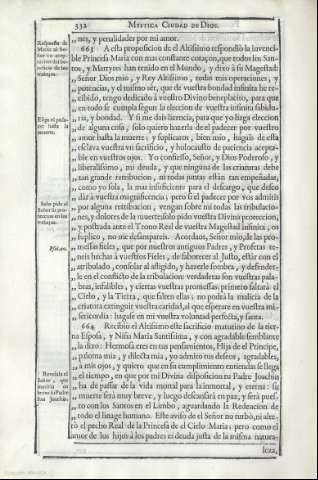 332 MYSTICA CIUDAD DE DIOS.
„ nes, y penalidades por mi amor.
Respuesta de
Maria al Señor
663 A esta proposicion de el Altissimo respondiò la invenci-
ble Princesa Maria con mas constante coraçon, que todos los San-
tos, y Martyres han tenido en el Mundo, y dixo à su Magestad
„ Señor Dios mio, y Rey Altissimo, todas mis operaciones, y
„ potencias, y el mismo sèr, que de vuestra bondad infinita he re-
„ cibido, tengo dedicado à vuestro Divino beneplacito, para que
„ en todo se cumpla segun la eleccion de vuestra infinita sabidu-
„ ria, y bondad. Y si me dais licencia, para que yo haga eleccion
Elige el pade-
cer hasta la
muerte.
„ de alguna cosa, solo quiero hazerla de el padecer por vuestro
„ amor hasta la muerte: y suplicaros, bien mio, hagais de esta
„ esclava vuestra un sacrificio, y holocausto de paciencia acepta-
„ ble en vuestros ojos. Yo confiesso, Señor, y Dios Poderoso, y
„ liberalissimo, mi deuda, y que ninguna de las criaturas debe
„ tan grande retribucion, ni todas juntas estàn tan empeñadas,
„ como yo sola, la mas insuficiente para el descargo, que deseo
„ dàr à vuestra magnificencia; pero si el padecer por vos admitis
„ por alguna retribucion, vengan sobre mi todas las tribulacio-
Solo pide al
Señor la pro-
teccion en los
trabajos.
„ nes, y dolores de la muerte: solo pido vuestra Divina proteccion,
„ y postrada ante el Trono Real de vuestra Magestad infinita, os
„ suplico, no me desampareis. Acordaos, Señor mio, de las pro-
Psal. 90.
„ messas fieles, que por nuestros antiguos Padres, y Profetas te-
„ neis hechas à vuestros Fieles, de favorecer al Justo, estàr con el
„ atribulado, consolar al afligido, y hazerle sombra, y defender-
„ le en el conflicto de la tribulacion: verdaderas son vuestras pala-
„ bras, infalibles, y ciertas vuestras promessas: primero faltarà el
„ Cielo, y la Tierra, que falten ellas: no podrà la malicia de la
„ criatura extinguir vuestra caridad, al que esperare en vuestra mi-
„ sericordia: hagase en mi vuestra voluntad perfecta, y santa.
664 Recibiò el Altissimo este sacrificio matutino de la tier-
na Esposa, y Niña Maria Santissima, y con agradable semblante
„ la dixo: Hermosa eres en tus pensamientos, Hija de el Principe,
„ paloma mia, y dilecta mia, yo admito tus deseos, agradables,
Revelale el
Señor, que
moriria en
breve su Padre
San Joachin.
„ à mis ojos, y quiero, que en su cumplimiento entiendas se llega
„ el tiempo, en que por mi Divina disposicion tu Padre Joachin
„ ha de passar de la vida mortal para la inmortal, y eterna: su
„ muerte serà muy breve, y luego descansarà en paz, y serà pues-
„ to con los Santos en el Limbo, aguardando la Redencion de
„ todo el linage humano. Este aviso de el Señor no turbò, ni al-
terò el pecho Real de la Princesa de el Cielo Maria; pero como el
amor de los hijos à los padres es deuda justa de la misma natura-
leza,